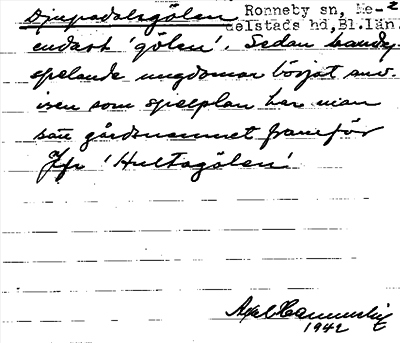 Djupadalsgölen Ronneby sn, Me- 2
delstads hd, Bl.län.
endast 'gölen'. Sedan bandy-
spelande ungdomar börjat anv.
isen som spelplan har man
satt gårdsnamnet framför
Jfr 'Hultagölen'
Axel
1942